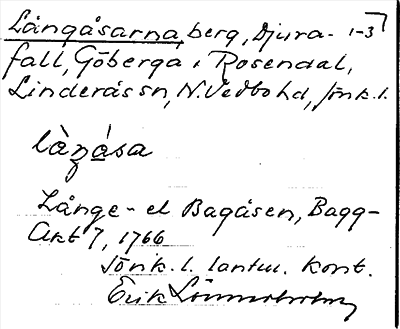 Långåsarna, berg, Djura- 1-3
fall, Göberga, Rosendal,
Linderås sn, N. Vedbo hd, Jönk. l.
làŋása
Långe- el Bagåsen, Bagg-
Akt 7, 1766
Jönk. l. lantm. kont.
Erik Lönnerholm